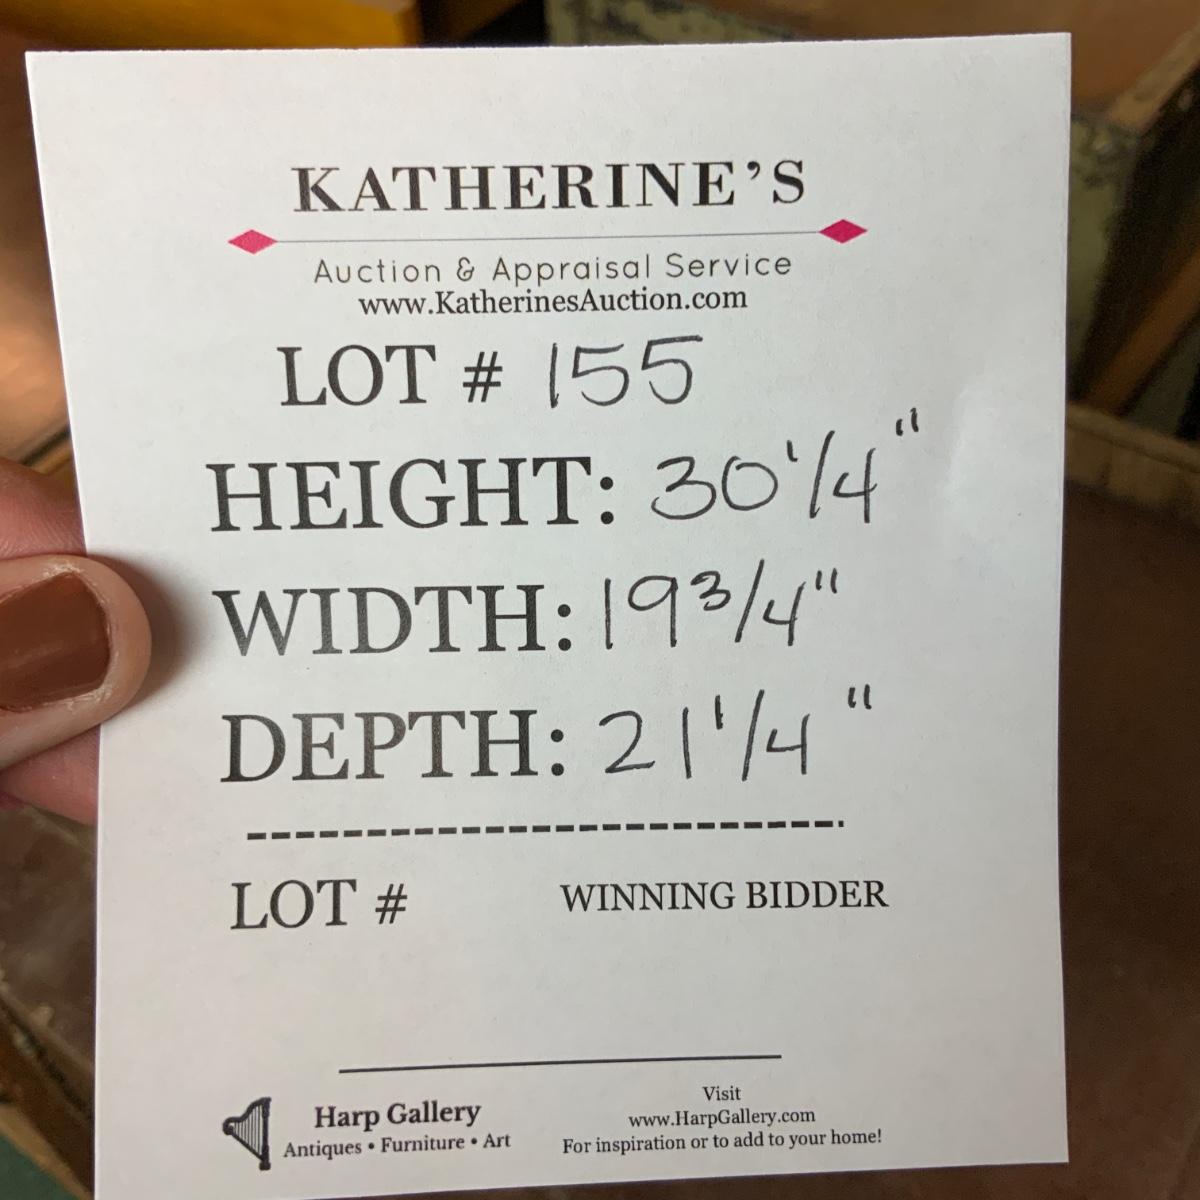 KATHERINE'S
Auction & Appraisal Service
www.KatherinesAuction.com
LOT # 155
HEIGHT: 30 1/4"
WIDTH: 19 3/4"
DEPTH: 21 1/4"
LOT # WINNING BIDDER
Harp Gallery
Antiques • Furniture • Art
Visit
www.HarpGallery.com
For inspiration or to add to your home!